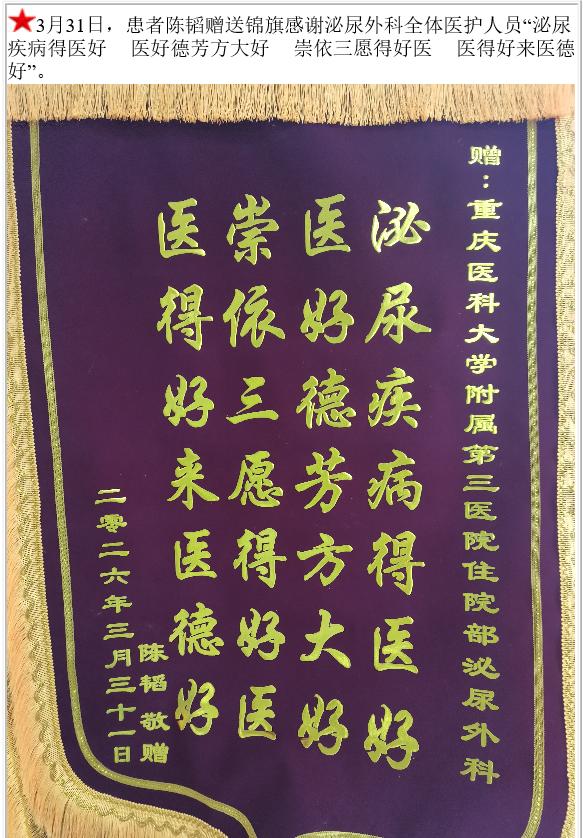 3月31日，患者陈韬赠送锦旗感谢泌尿外科全体医护人员“泌尿
疾病得医好　医好德芳方大好　崇依三愿得好医　医得好来医德
好”。
赠：重庆医科大学附属第三医院住院部泌尿外科
泌尿疾病得医好
医好德芳方大好
崇依三愿得好医
医得好来医德好
陈韬 敬赠
二零二六年三月三十一日